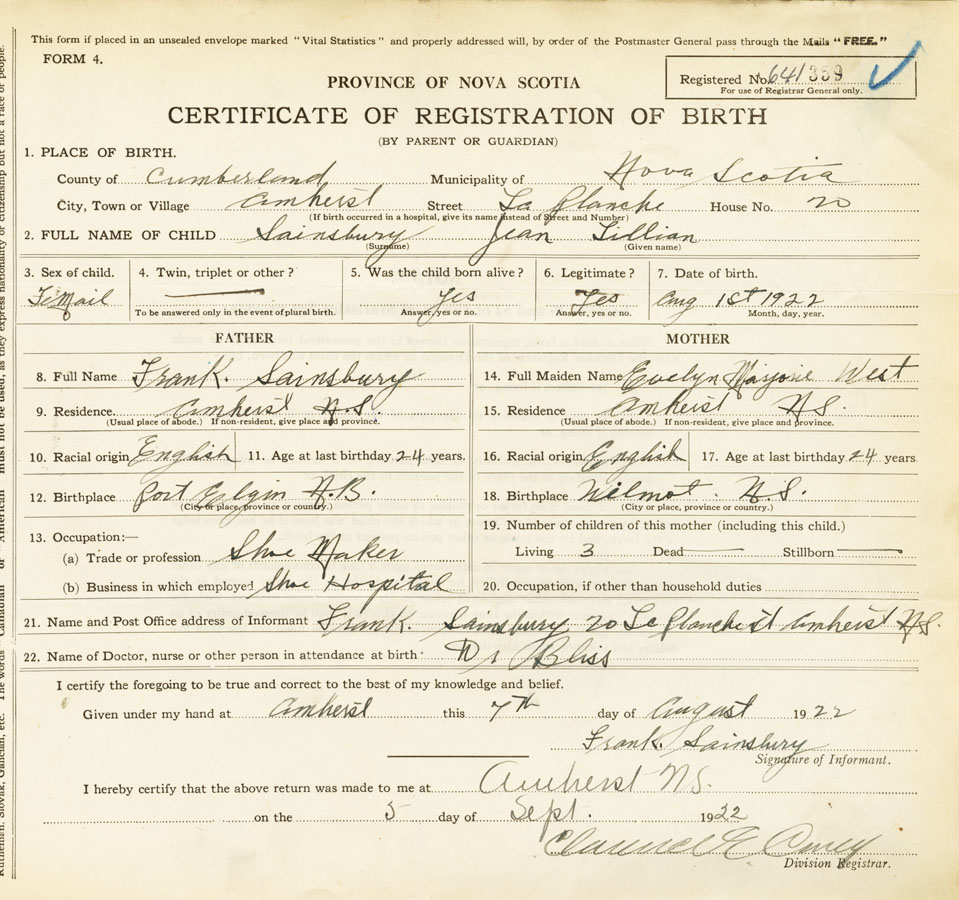 This form if placed in an unsealed envelope marked "Vital Statistics" and properly addressed will, by order of the Postmaster General pass through the Mails "FREE."
FORM 4.
Registered No. 641 359
For use of Registrar General only.
PROVINCE OF NOVA SCOTIA
CERTIFICATE OF REGISTRATION OF BIRTH
(BY PARENT OR GUARDIAN)
1. PLACE OF BIRTH.
County of Cumberland Municipality of Nova Scotia
City, Town or Village Amherst Street La Planche House No. 20
(If birth occurred in a hospital, give its name instead of Street and Number)
2. FULL NAME OF CHILD Sainsbury Jean Lillian
(Surname) (Given name)
3. Sex of child. 4. Twin, triplet or other? 5. Was the child born alive? 6. Legitimate? 7. Date of birth.
FeMail Yes Yes Aug 1st 1922
To be answered only in the event of plural birth. Answer, yes or no. Answer, yes or no. Month, day, year.
FATHER MOTHER
8. Full Name Frank. Sainsbury 14. Full Maiden Name Evelyn Marjorie West
9. Residence. Amherst N.S. 15. Residence Amherst NS.
(Usual place of abode.) If non-resident, give place and province. (Usual place of abode.) If non-resident, give place and province.
10. Racial origin English 11. Age at last birthday 24 years. 16. Racial origin English 17. Age at last birthday 24 years.
12. Birthplace Port Elgin N.B. 18. Birthplace Wilmot. N.S.
(City or place, province or country.) (City or place, province or country.)
13. Occupation:— 19. Number of children of this mother (including this child.)
(a) Trade or profession Shoe Maker Living 3 Dead Stillborn
(b) Business in which employed Shoe Hospital 20. Occupation, if other than household duties
21. Name and Post Office address of Informant Frank. Sainsbury 20 La Planche st Amherst N.S.
22. Name of Doctor, nurse or other person in attendance at birth Dr Bliss
I certify the foregoing to be true and correct to the best of my knowledge and belief.
Given under my hand at Amherst this 7th day of August 1922
Frank. Sainsbury
Signature of Informant.
I hereby certify that the above return was made to me at Amherst NS.
on the 5 day of Sept. 1922
Division Registrar.